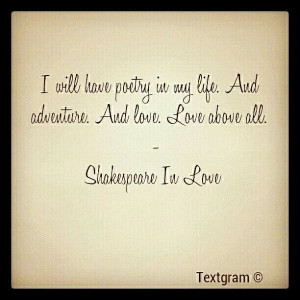 I will have poetry in my life. And
adventure. And love. Love above all.
-
Shakespeare In Love
Textgram ©